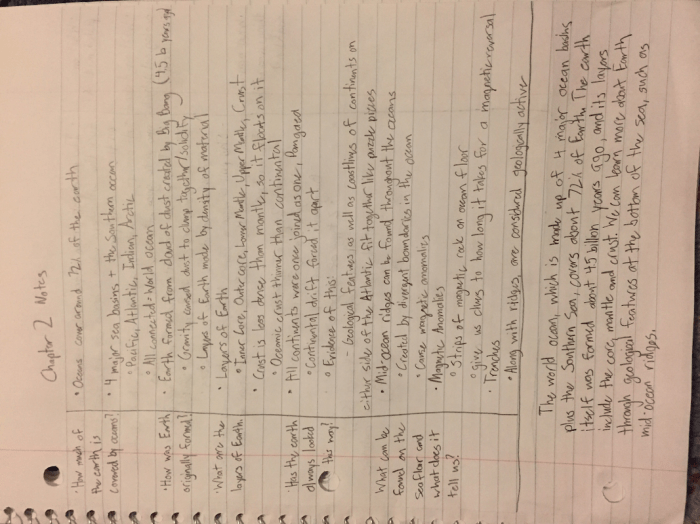 Chapter 2 Notes
· How much of
the earth is
covered by oceans?
· Oceans cover around 72% of the earth
· 4 major sea basins + the Southern ocean
° Pacific, Atlantic, Indian, Arctic
° All connected = World ocean
· How was Earth
originally formed?
· Earth formed from cloud of dust created by Big Bang (4.5 b years ago)
° Gravity caused dust to clump together/solidify
° Layers of Earth made by density of material
· What are the
layers of Earth.
· Layers of Earth
° Inner Core, Outer core, Lower Mantle, Upper Mantle, Crust
· Crust is less dense than mantle, so it floats on it
° Oceanic crust thinner than continental
· Has the earth
always looked
this way?
· All continents were once joined as one, Pangaea
° Continental drift forced it apart
° Evidence of this:
- Geological features as well as coastlines of continents on
either side of the Atlantic fit together like puzzle pieces
What can be
found on the
seafloor and
what does it
tell us?
· Mid-ocean ridges can be found throughout the oceans
° Created by divergent boundaries in the ocean
° Cause magnetic anomalies
· Magnetic Anomalies
° Strips of magnetic rock on ocean floor
° give us clues to how long it takes for a magnetic reversal
· Trenches
° Along with ridges, are considered geologically active
The world ocean, which is made up of 4 major ocean basins
plus the Southern Sea, covers about 72% of Earth. The earth
itself was formed about 4.5 billion years ago, and its layers
include the core, mantle and crust. We can learn more about Earth
through geological features at the bottom of the sea, such as
mid-ocean ridges.